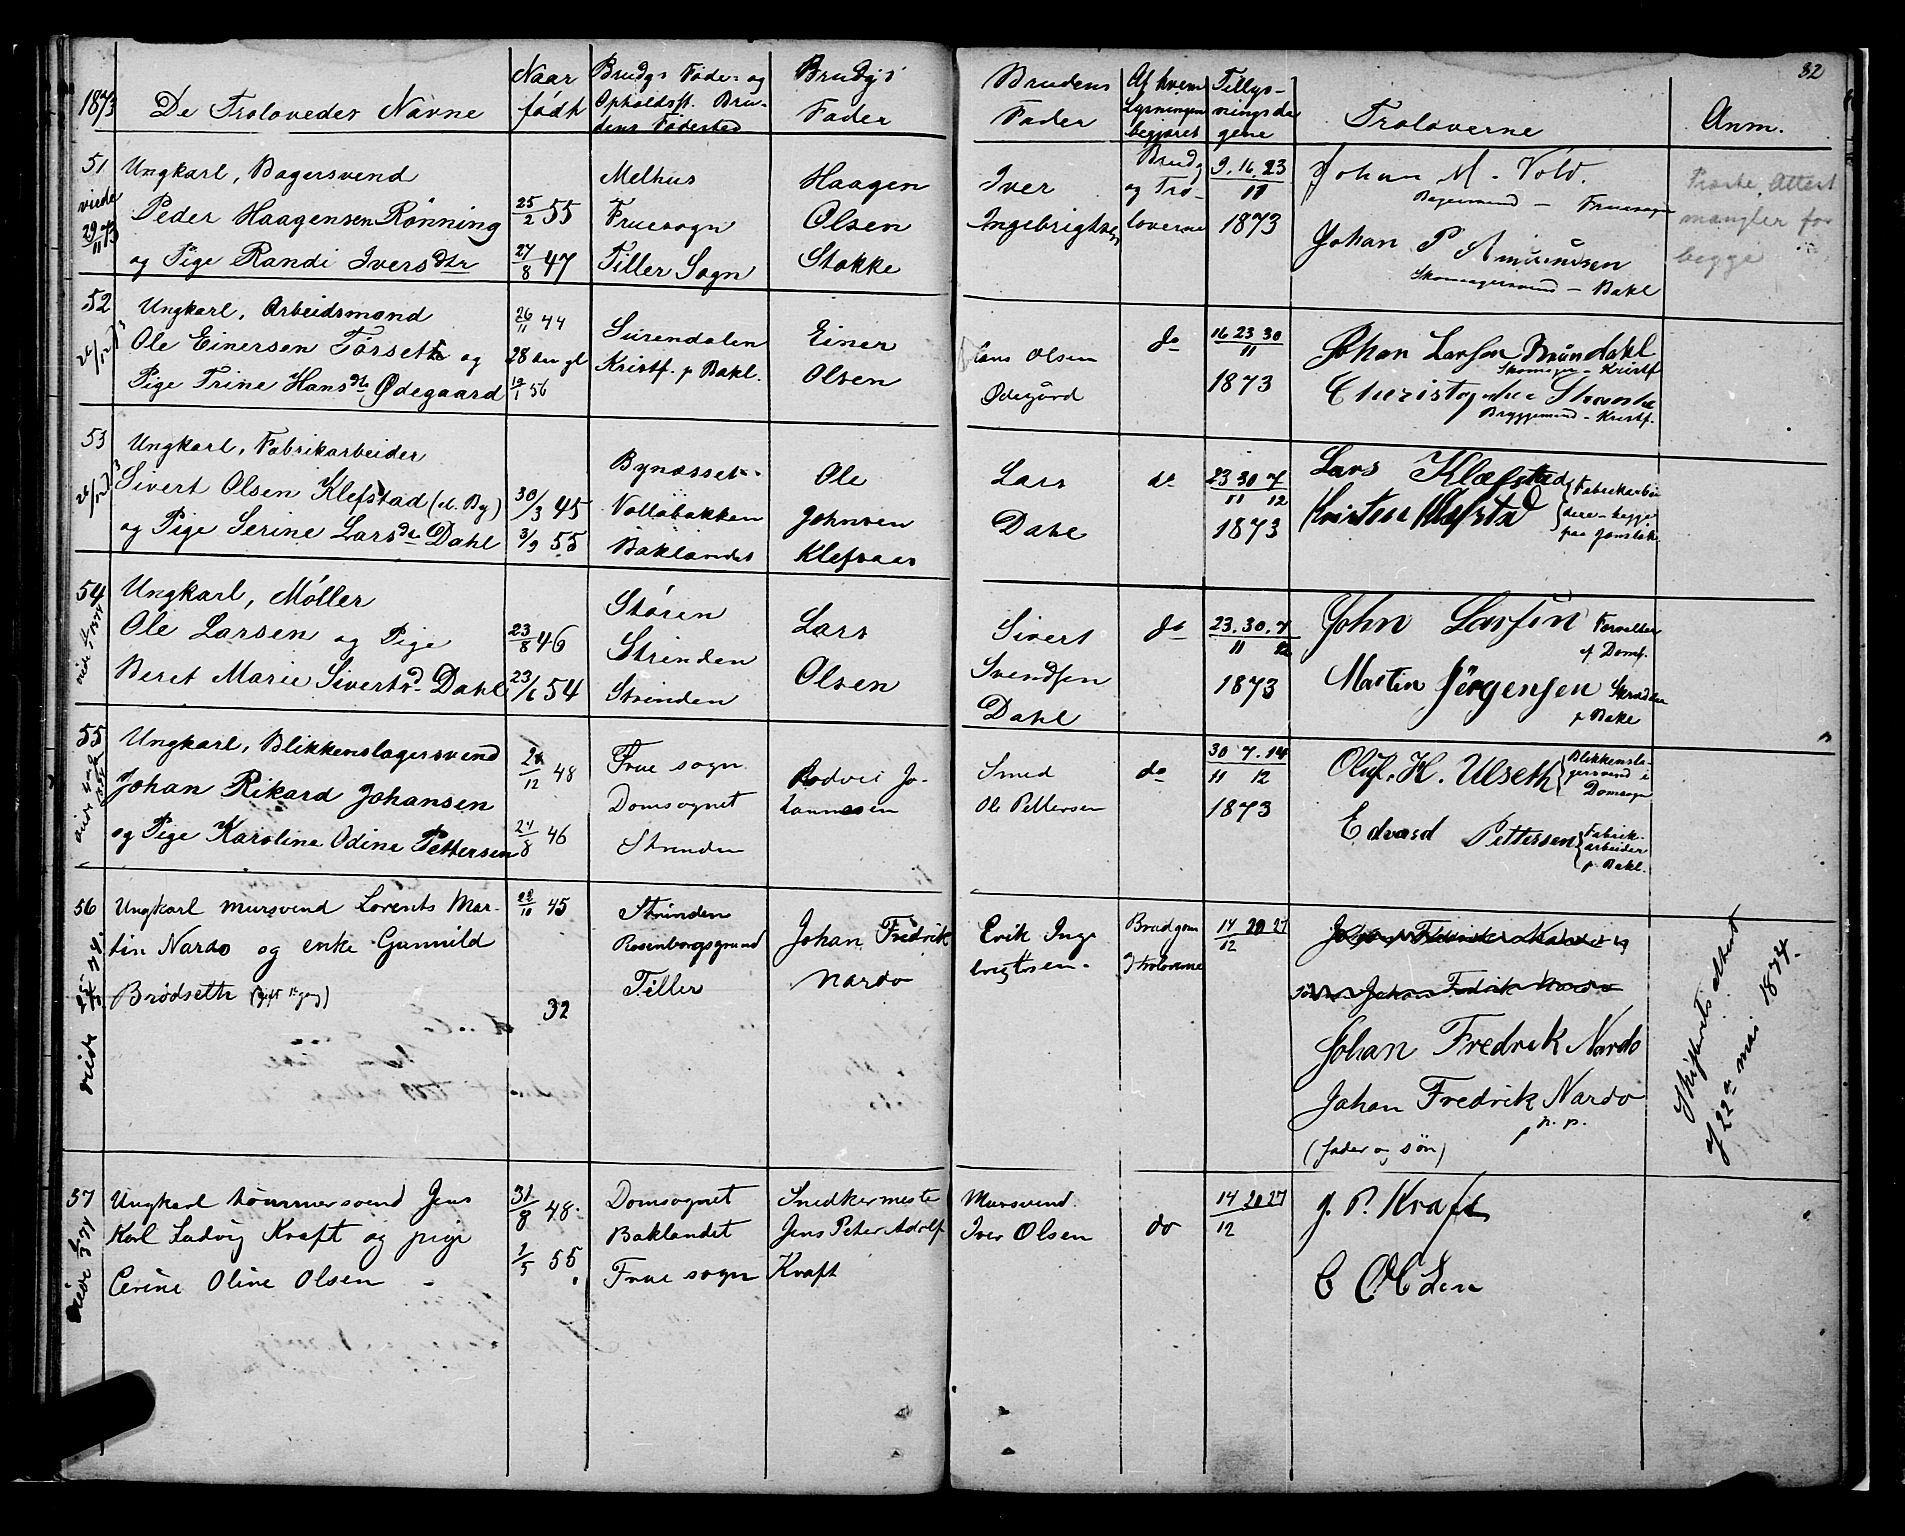 1873
De Trolovedes Navne
Naar født
Brudgs Føde- og Opholdsst. Brudens Fødested
Brudgs Fader
Brudens Fader
Af hvem Lysningen begjæret
Tillysningsdagene
Troloverne
Anm.
32
51
viede 29/11 73
Ungkarl, Bagersvend
Peder Haagensen Rønning
og Pige Randi Iversdtr
25/2 55
27/8 47
Melhus
Fruesogn
Tiller Sogn
Haagen
Olsen
Stokke
Iver
Ingebrigtsen
Brudg
og Tro-
loverne
9. 16. 23
11
1873
Johan M. Vold.
Bagersvend – Fruesogn
Johan P Amundsen
Skomagersvend – Bakl
Præste Attest
mangler for
begge
52
Ungkarl, Arbeidsmand
Ole Einersen Torseth og
Pige Trine Hansdtr Ødegaard
26/11 44
28 Aar gl
10/1 56
Surendalen
Kristf. p Bakl.
Einer
Olsen
Hans Olsen
Ødegård
do
16 23 30
11
1873
Johan Larsen Brundahl
Skomager – Kristf
Bryggemand – Kristf.
53
Ungkarl, Fabrikarbeider
Sivert Olsen Klefstad (d. By)
og Pige Serine Larsdtr Dahl
30/3 45
3/9 55
Bynæsset
Vollabakken
Baklandet
Ole
Johnsen
Klefsaas
Lars
Dahl
do
23 30 7
11 12
1873
Lars Klæfstad
Kristen Klefstad
Fabrikarbei-
dere – begge
paa
54
Ungkarl, Møller
Ole Larsen og Pige
Beret Marie Sivertsd. Dahl
23/8 46
23/6 54
Støren
Strinden
Strinden
Lars
Olsen
Sivert
Svendsen
Dahl
do
23. 30. 7
11 12
1873
John Larsen Forvalter
p Doms.
Martin Jørgensen Skrædder
p Bakl
55
Ungkarl, Blikkenslagersvend
Johan Rikard Johansen
og Pige Karoline Odine Pettersen
12 48
24/8 46
Frue sogn.
Domsognet
Strinden
Lodvei Jo-
hannesen
Smed
Ole Pettersen
do
30 7. 14
11 12
1873
Oluf. H. Ulseth
Blikkensla-
gersvend i
Domsogn
Edvard Pettersen
Fabrik-
arbeider
p. Bakl.
56
viede 25/5 74.
Ungkarl mursvend Lorents Mar-
tin Nardo og enke Gunnild
Brødseth (gift 1ste gang)
28/10 45
32
Strinden
Rosenborgsgrund
Tiller
Johan Fredrik
Nardo
Erik Inge
brigtsen.
Brudgom
& troloverne
14 20 27
12
Johan Fredrik Nardo
Johan Fredrik Nardo
Johan Fredrik Nardo
p n. n.
(fader og søn)
Skifterets attest
af 22de mai 1874.
57
viede 74
Ungkarl tømmersvend Jens
Karl Ludvig Kraft og pige
Cerine Oline Olsen
31/8 48.
1/5 55
Domsognet
Baklandet
Frue sogn
Snedkermeste
Jens Peter Adolf
Kraft
Mursvend.
Iver Olsen
do
14 20 27
12
J. P. Kraft
C Olsen